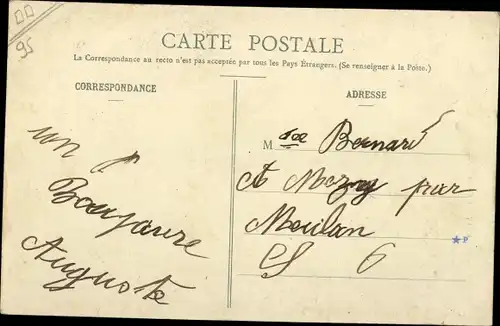 95
CARTE POSTALE
La Correspondance au recto n'est pas acceptée par tous les Pays Étrangers. (Se renseigner à la Poste.)
CORRESPONDANCE
un
Bonjour
Auguste
ADRESSE
M Bernard
A Mezy par
Meulan
S 6